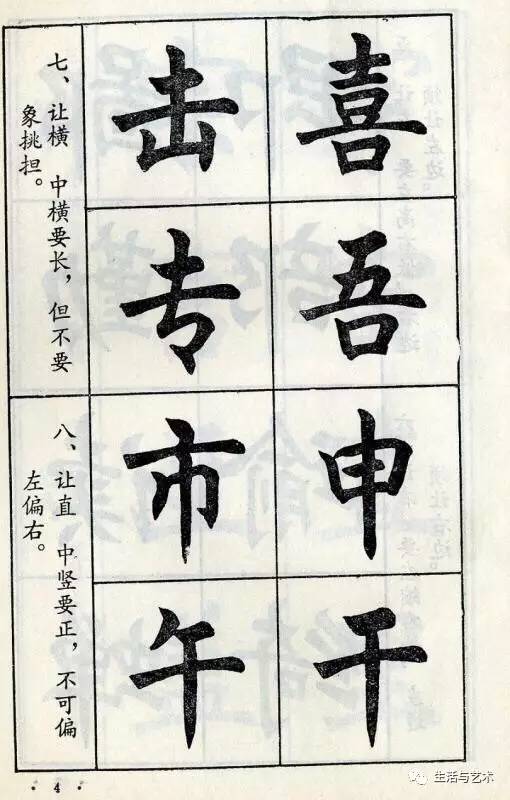 喜
吾
击
专
七、让横 中横要长，但不要
象挑担。
申
干
市
午
八、让直 中竖要正，不可偏
左偏右。
· 4 ·
生活与艺术